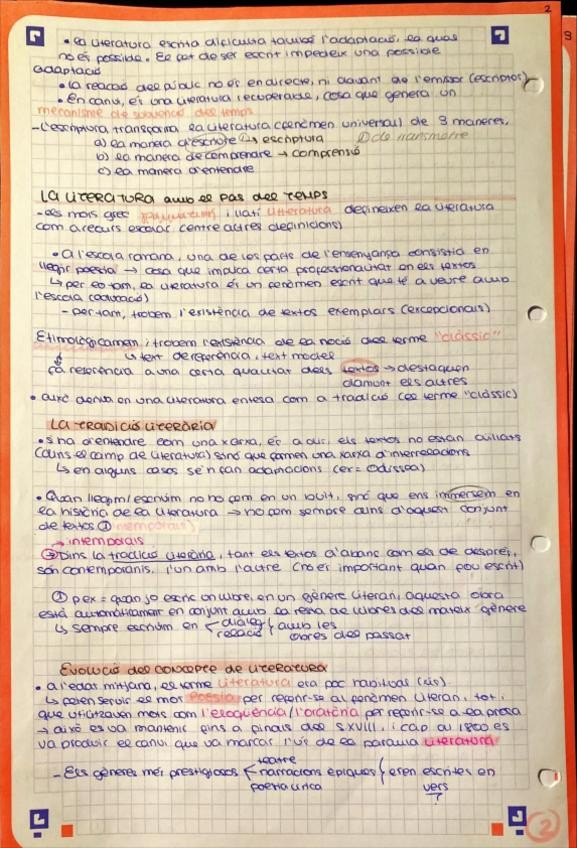 2
• la literatura escrita dificulta també l'adaptació, la qual
no és possible. El fet de ser escrit impedeix una possible
adaptació
• la reacció del públic no és en directe, ni davant de l'emissor (escriptor)
• En canvi, és una literatura recuperable, cosa que genera un
mecanisme de superació del temps
- L'escriptura transforma la literatura (fenòmen universal) de 3 maneres,
a) la manera d'escriure → escriptura ① de transmetre
b) la manera de comprendre → comprensió
c) la manera d'entendre
LA LITERATURA amb el PAS del TEMPS
- els mots grec i llatí Litteratura defineixen la literatura
com a recurs escolar (entre altres definicions)
• A l'escola romana, una de les parts de l'ensenyança consistia en
llegir poesia → cosa que implica certa professionalitat en els textos
↳ per tant, la literatura és un fenòmen escrit que té a veure amb
l'escola (educació)
- per tant, trobem l'existència de textos exemplars (excepcionals)
Etimològicament, trobem l'existència de la noció del terme "clàssic"
↳ text de referència, text model
fa referència a una certa qualitat dels textos → destaquen
damunt els altres
• això deriva en una literatura entesa com a tradició (el terme "clàssic")
LA TRADICIÓ LITERÀRIA
• s'ha d'entendre com una xarxa, és a dir, els textos no estan aïllats
(dins el camp de literatura) sinó que formen una xarxa d'interrelacions
↳ en alguns casos se'n fan adaptacions (ex = Odissea)
• Quan llegim/escrivim no ho fem en un buit, sinó que ens immersem en
la història de la literatura → ho fem sempre dins d'aquest conjunt
de textos ① intemporals)
→ intemporals
② Dins la tradició literària, tant els textos d'abans com els de després,
són contemporanis, l'un amb l'altre (no és important quan fou escrit)
① p.ex = quan jo escric un llibre, en un gènere literari, aquesta obra
està automàticament en conjunt amb la resta de llibres del mateix gènere
↳ sempre escrivim en diàleg / relació amb les
obres del passat
Evolució del concepte de Literatura
• a l'edat mitjana, el terme literatura era poc habitual
↳ feien servir el mot Poesia per referir-se al fenòmen literari, tot i
que utilitzaven mots com l'eloqüència / l'oratòria per referir-se a la prosa
→ això es va mantenir fins a finals del S.XVIII, i cap al 1800 es
va produir el canvi que va marcar l'ús de la paraula Literatura
teatre
- Els gèneres més prestigiosos narracions èpiques eren escrites en
poesia lírica vers
?
2